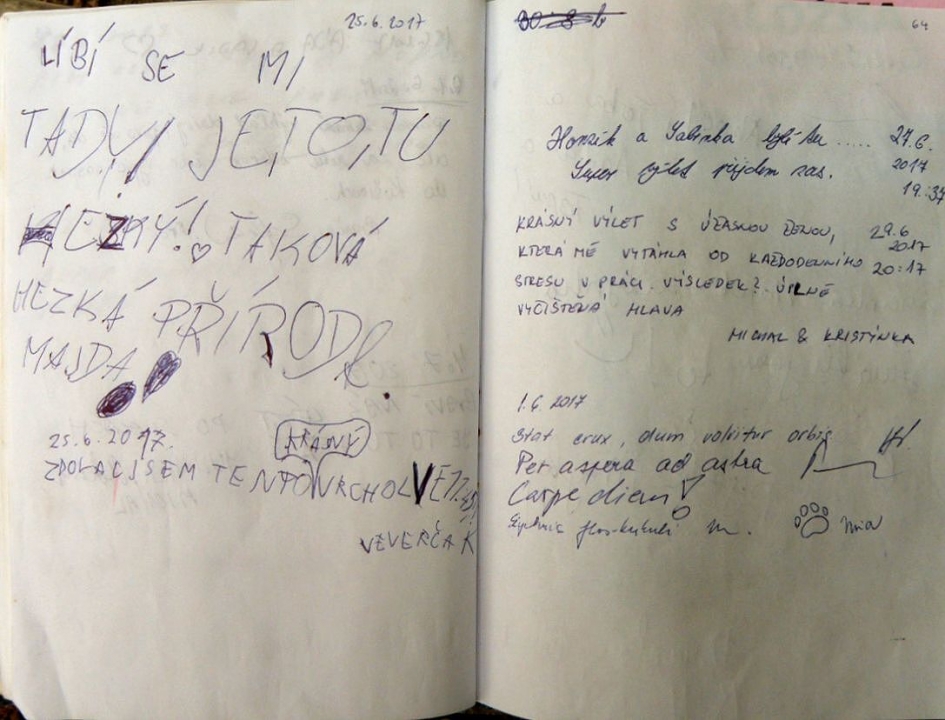 25.6.2017
LÍBÍ SE MI
TADY! JE TO TU
HEZKÝ! TAKOVÁ
HEZKÁ PŘÍRODA
MAJDA
25.6.2017.
KRÁSNÝ
ZDOLAL JSEM TENTO VRCHOL VE 17.45!
VEVERČÁK
64
Honzík a Sabinka byli tu..... 27.6.
Super výlet přijdem zas. 2017
19:37
KRÁSNÝ VÝLET S ÚŽASNOU ŽENOU, 29.6
KTERÁ MĚ VYTÁHLA OD KAŽDODENNÍHO 2017
STRESU V PRÁCI. VÝSLEDEK? ÚPLNĚ 20:17
VYČIŠTĚNÁ HLAVA
MICHAL & KRISTÍNKA
1.6.2017
Stat crux, dum volvitur orbis
Per aspera ad astra
Carpe diem!
m. mia